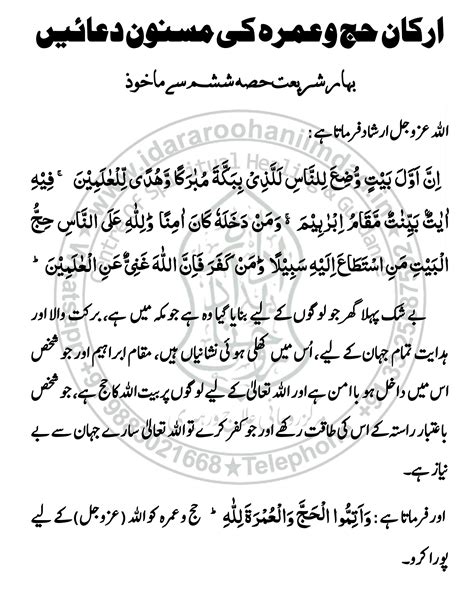 ارکان حج و عمرہ کی مسنون دعائیں
بہار شریعت حصہ ششم سے ماخوذ
اللہ عزوجل ارشاد فرماتا ہے:
اِنَّ اَوَّلَ بَیْتٍ وُّضِعَ لِلنَّاسِ لَلَّذِیْ بِبَكَّةَ مُبٰرَكًا وَّهُدًی لِّلْعٰلَمِیْنَ ۚ فِیْهِ
اٰیٰتٌۢ بَیِّنٰتٌ مَّقَامُ اِبْرٰهِیْمَ ۚ۬ وَمَنْ دَخَلَهٗ كَانَ اٰمِنًا ؕ وَلِلّٰهِ عَلَی النَّاسِ حِجُّ
الْبَیْتِ مَنِ اسْتَطَاعَ اِلَیْهِ سَبِیْلًا ؕ وَمَنْ كَفَرَ فَاِنَّ اللّٰهَ غَنِیٌّ عَنِ الْعٰلَمِیْنَ ؕ
بے شک پہلا گھر جو لوگوں کے لیے بنایا گیا وہ ہے جو مکہ میں ہے، برکت والا اور
ہدایت تمام جہان کے لیے، اُس میں کھلی ہوئی نشانیاں ہیں، مقام ابراہیم اور جو شخص
اس میں داخل ہو با امن ہے اور اللہ تعالیٰ کے لیے لوگوں پر بیت اللہ کا حج ہے، جو شخص
باعتبار راستہ کے اس کی طاقت رکھے اور جو کفر کرے تو اللہ تعالیٰ سارے جہان سے بے
نیاز ہے۔
اور فرماتا ہے: وَاَتِمُّوا الْحَجَّ وَالْعُمْرَةَ لِلّٰهِ ؕ حج و عمرہ کو اللہ (عزوجل) کے لیے
پورا کرو۔